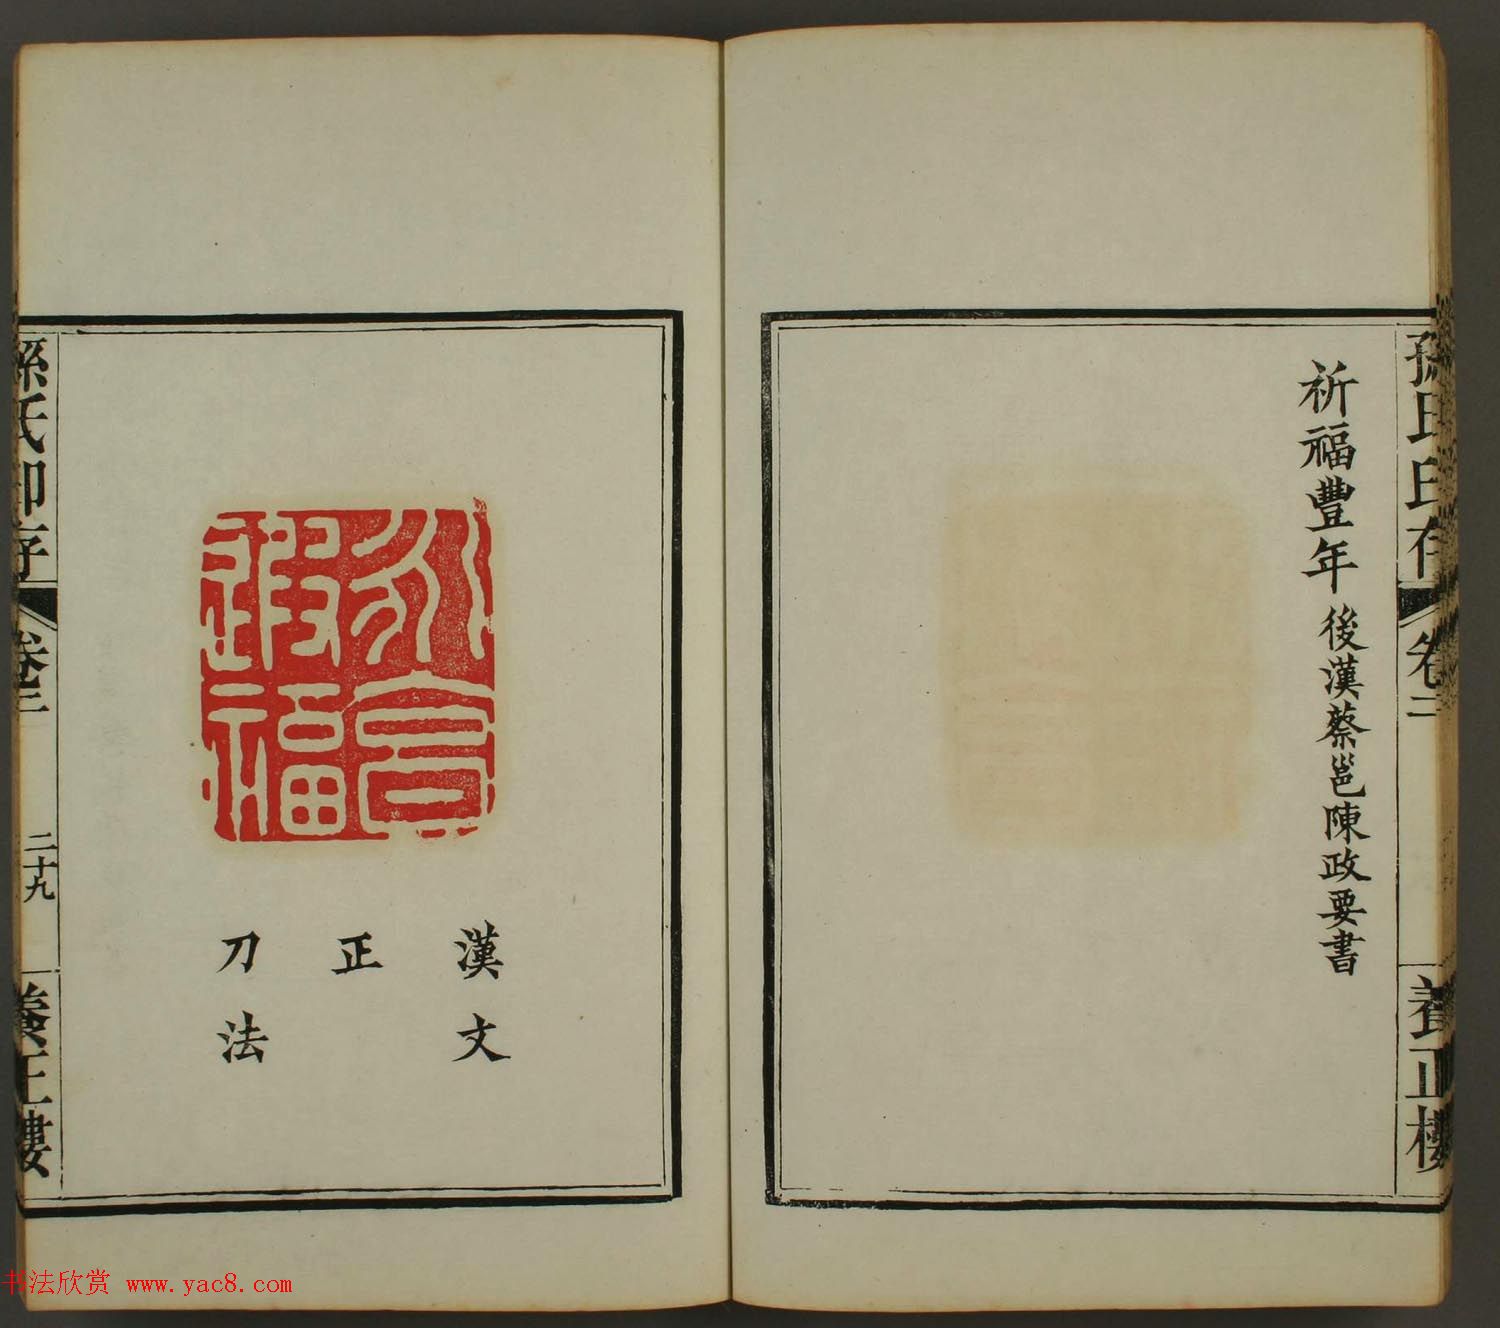 孫氏印存 卷二 養正樓
祈福豐年 後漢蔡邕陳政要書
永享
遐福
漢文
正
刀法
孫氏印存 卷二 二十九 養正樓
书法欣赏 www.yac8.com